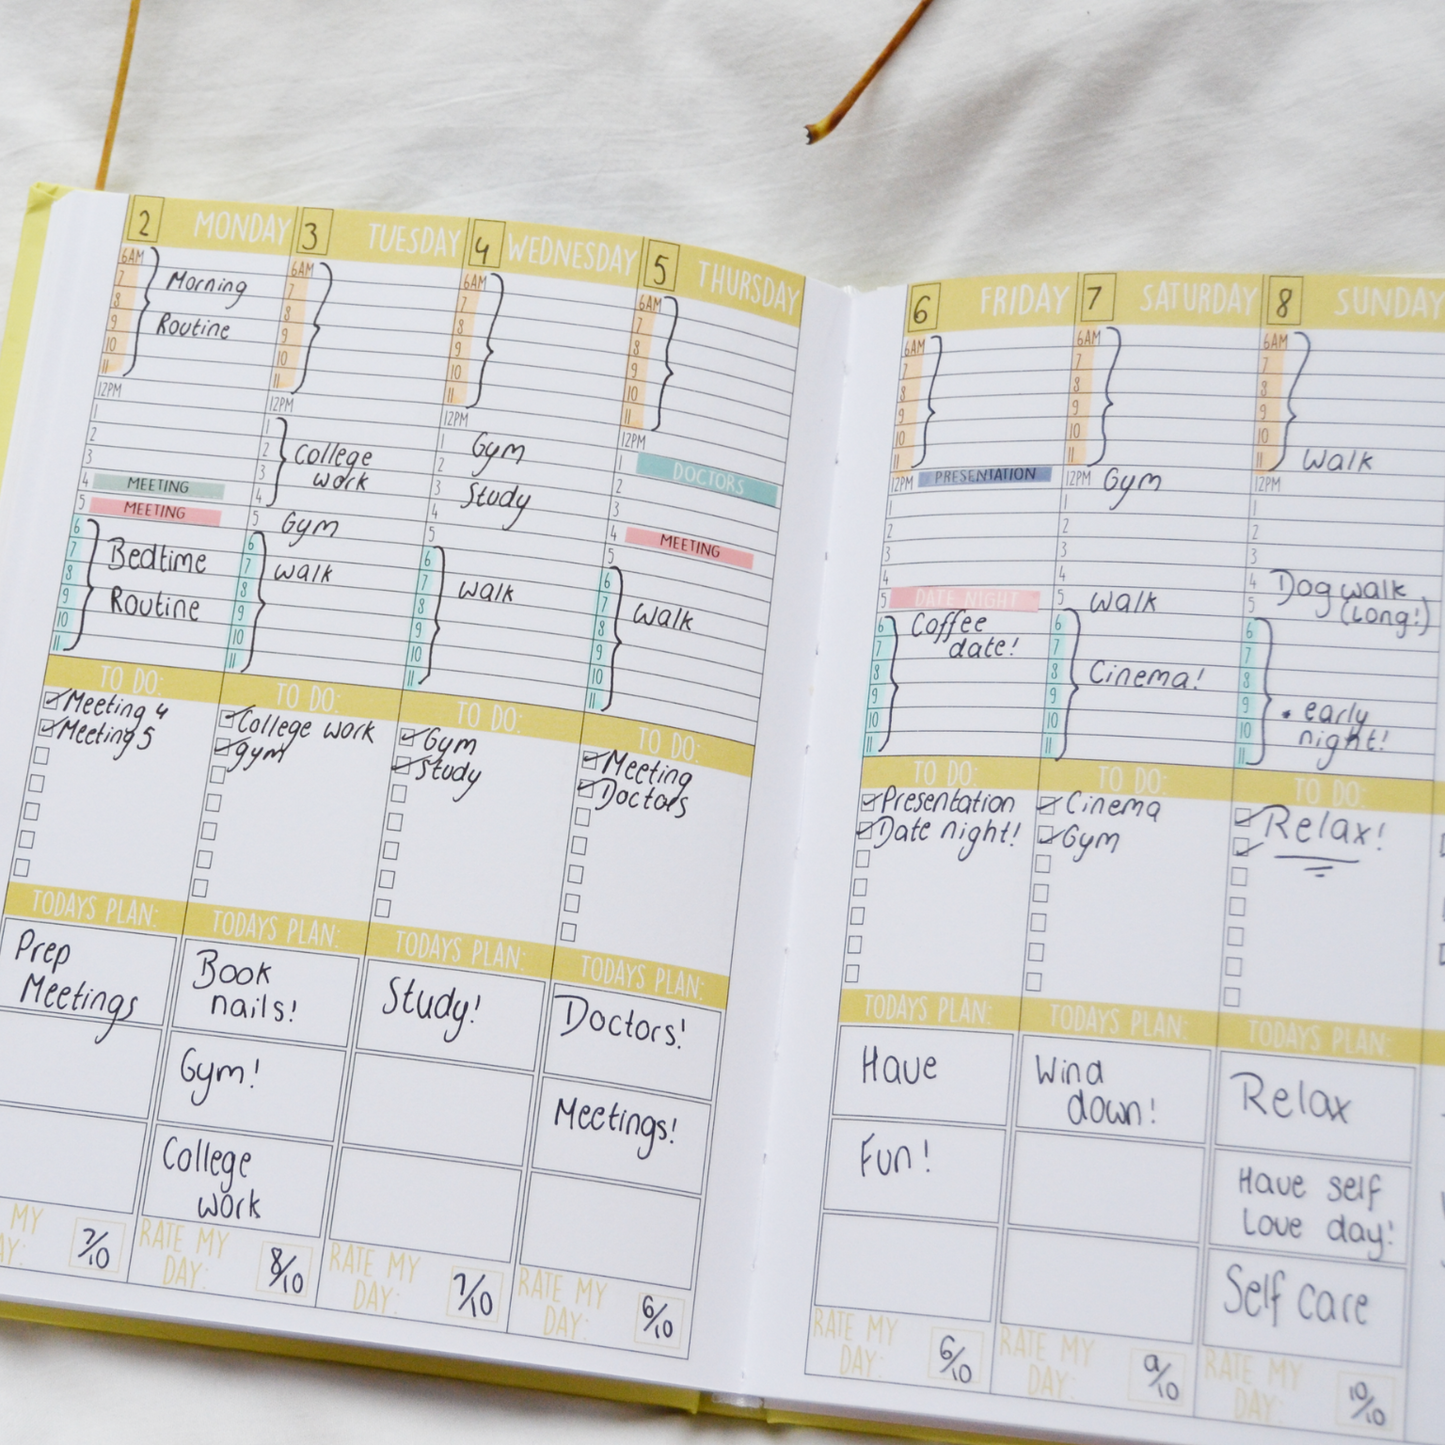 2 MONDAY
6AM
7 Morning
8
9 Routine
10
11
12PM
1
2
3
4 MEETING
5 MEETING
6
7 Bedtime
8
9 Routine
10
11
TO DO:
Meeting 4
Meeting 5
TODAYS PLAN:
Prep
Meetings
MY
7/10
3 TUESDAY
6AM
7
8
9
10
11
12PM
1
2 College
3 work
4
5 Gym
6
7 walk
8
9
10
11
TO DO:
College work
gym
TODAYS PLAN:
Book
nails!
Gym!
College
work
RATE MY
DAY:
8/10
4 WEDNESDAY
6AM
7
8
9
10
11
12PM
1 Gym
2
3 Study
4
5
6
7
8 walk
9
10
11
TO DO:
Gym
Study
TODAYS PLAN:
Study!
RATE MY
DAY:
7/10
5 THURSDAY
6AM
7
8
9
10
11
12PM
1 DOCTORS
2
3
4 MEETING
5
6
7
8 walk
9
10
11
TO DO:
Meeting
Doctors
TODAYS PLAN:
Doctors!
Meetings!
RATE MY
DAY:
6/10
6 FRIDAY
6AM
7
8
9
10
11
12PM PRESENTATION
1
2
3
4
5 DATE NIGHT
6 Coffee
7 date!
8
9
10
11
TO DO:
Presentation
Date night!
TODAYS PLAN:
Have
Fun!
RATE MY
DAY:
6/10
7 SATURDAY
6AM
7
8
9
10
11
12PM Gym
1
2
3
4
5 walk
6
7
8 Cinema!
9
10
11
TO DO:
Cinema
Gym
TODAYS PLAN:
Wind
down!
RATE MY
DAY:
9/10
8 SUNDAY
6AM
7
8
9
10
11 walk
12PM
1
2
3
4 Dog walk
5 (Long!)
6
7
8
9 • early
10 night!
11
TO DO:
Relax!
TODAYS PLAN:
Relax
Have self
Love day!
Self care
RATE MY
DAY:
10/10